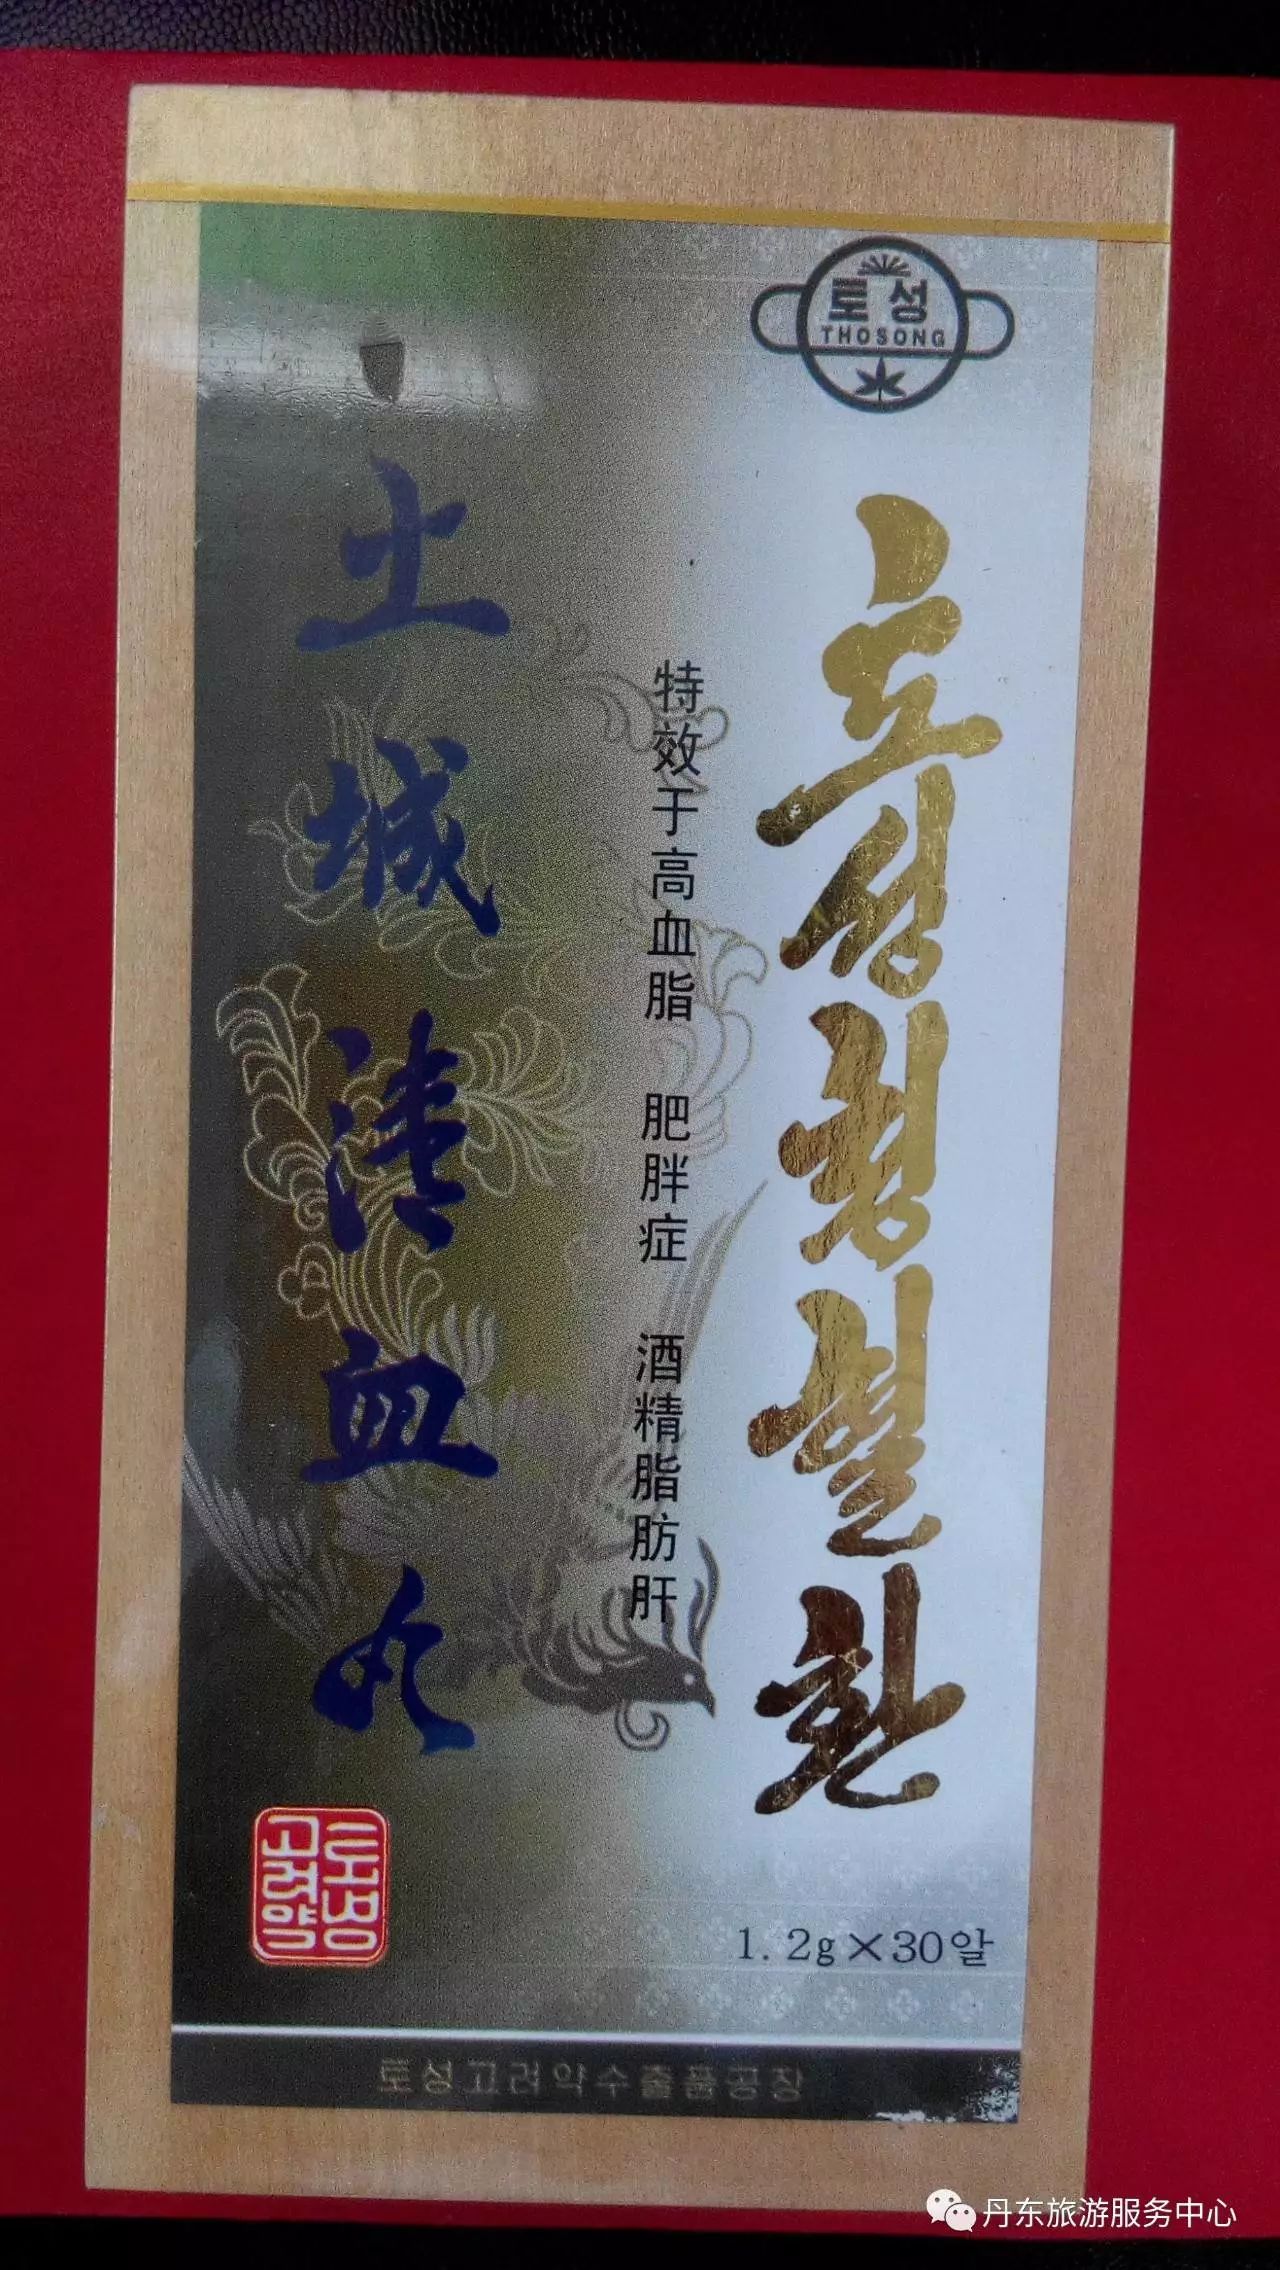 토성
THOSONG
토성청혈환
特效于高血脂 肥胖症 酒精脂肪肝
土城清血丸
토성
고려약
1.2g×30알
토성고려약수출품공장
丹东旅游服务中心